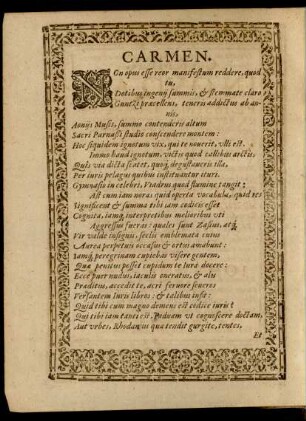 CARMEN.
NOn opus esse reor manifestum reddere, quod
tu,
Dotibus ingenij summis, & stemmate claro
Guntzi praecellens, teneris addictus ab an-
nis,
Aonijs Musis, summo contenderis altum
Sacri Parnassi studio conscendere montem:
Hoc siquidem ignotum vix, qui te noverit, vlli est.
Immo haud ignotum, victis quod callibus arctis,
Quis via dicta scatet, quoq, angustaveris illa,
Per iuris pelagus quibus instituantur ituri.
Gymnasio in celebri, Viadrus quod flumine tangit;
Ast cum iam noras quid operta vocabula, quid res
Significent & summa tibi iam codicis esset
Cognita, iamq, interpretibus melioribus vti
Aggressus fueras: quales sunt Zasius, atq,
Vir valde insignis, spolii emblemata cuius
Aurea perpetuis occasus & ortus amabunt:
Iamq, peregrinam cupiebas visere gentem,
Qua penitus posset cupidum te iura docere:
Ecce puer nudus, iaculis oneratus, & alis
Praditus, accedit te, acri fervore feroces
Versantem Iuris libros; & talibus infit:
Quid tibi cum magno demens est codice iuris?
Qui tibi iam tanti est, Paduam vt cognoscere doctam,
Aut velles, Rhodanus qua tendit gurgite, tentes.
Et